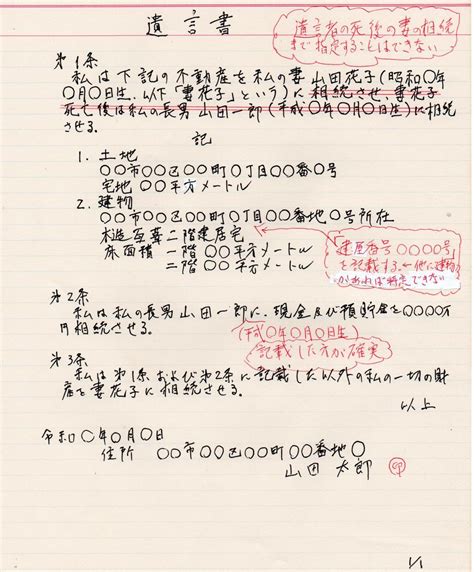 遺言書
遺言者の死後の妻の相続
まで指定することはできない
第1条
私は下記の不動産を私の妻山田花子(昭和〇年
〇月〇日生、以下「妻花子」という)に相続させ、妻花子
死亡後は私の長男山田一郎(平成〇年〇月〇日生)に相続
させる。
記
1. 土地
〇〇市〇〇区〇〇町〇丁目〇〇番〇号
宅地 〇〇平方メートル
2. 建物
〇〇市〇〇区〇〇町〇丁目〇〇番地〇号所在
木造瓦葺二階建居宅
床面積 一階 〇〇平方メートル
二階 〇〇平方メートル
「家屋番号〇〇〇〇号」
を記載する←他に建物
があれば特定できない
第2条
私は私の長男山田一郎に、現金及び預貯金を〇〇〇〇万
円相続させる。
(平成〇年〇月〇日生)
記載した方が確実
第3条
私は第1条および第2条に記載した以外の私の一切の財
産を妻花子に相続させる。
以上
令和〇〇年〇月〇日
住所 〇〇市〇〇区〇〇町〇〇番地〇
山田 太郎 印
1/1